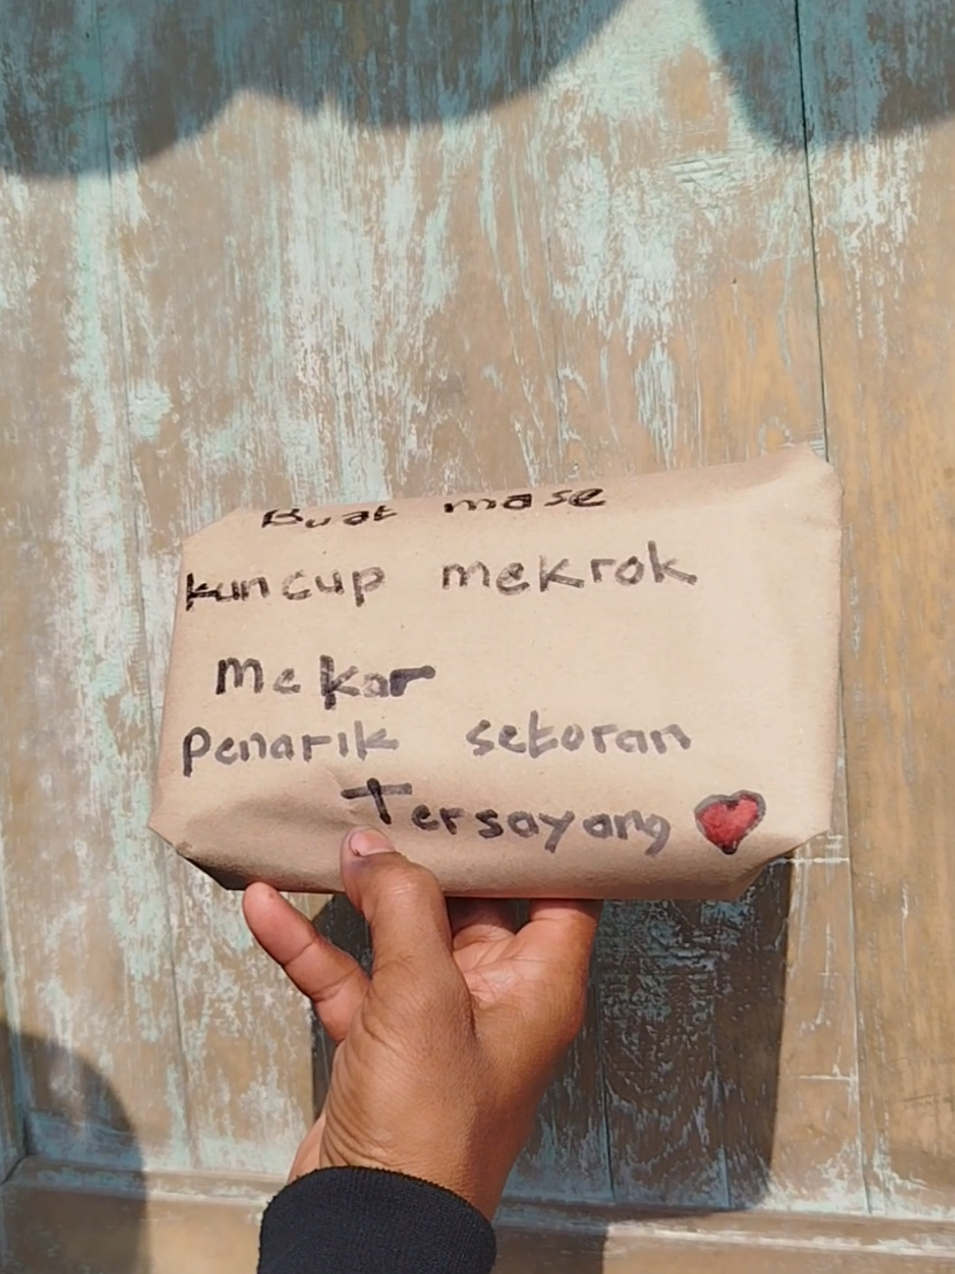 Buat mase
kuncup mekrok
Mekar
Penarik setoran
Tersayang